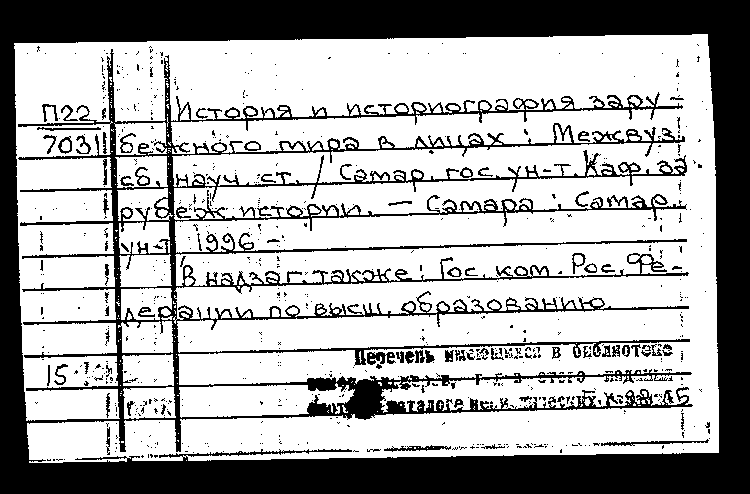 П22 История и историография зару-
7031 бежного мира в лицах : Межвуз.
сб. науч. ст. / Самар. гос. ун-т. Каф. за
рубеж. истории. — Самара : Самар.
ун-т, 1996 -
В надзаг. также : Гос. ком. Рос. Фе-
дерации по высш. образованию.
Перечень имеющихся в библиотеке
этого издания
15
каталоге